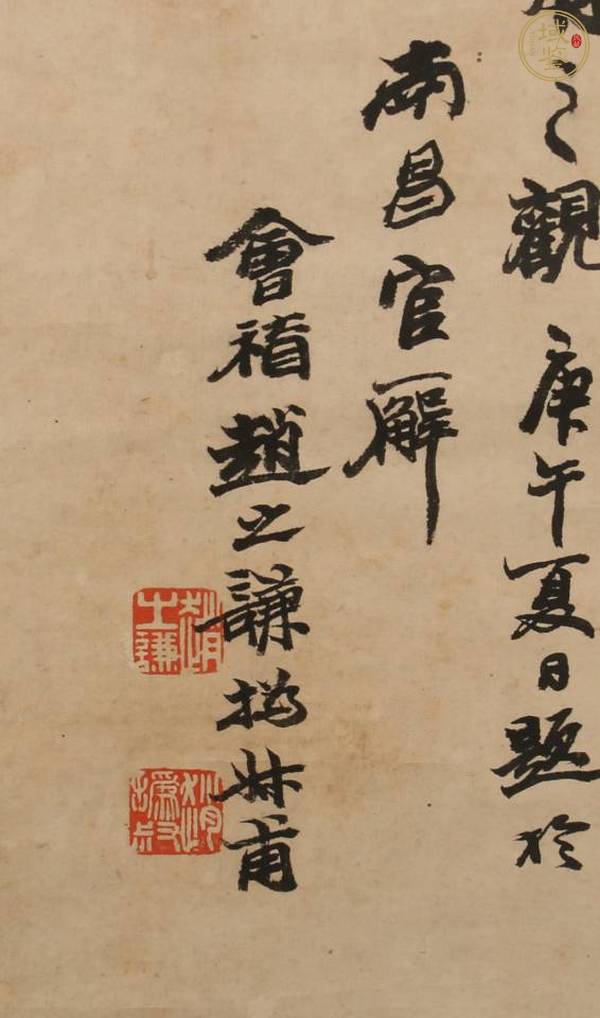 之觀庚午夏日題於
南昌官廨
會稽趙之謙撝叔甫
趙之謙
域鉴